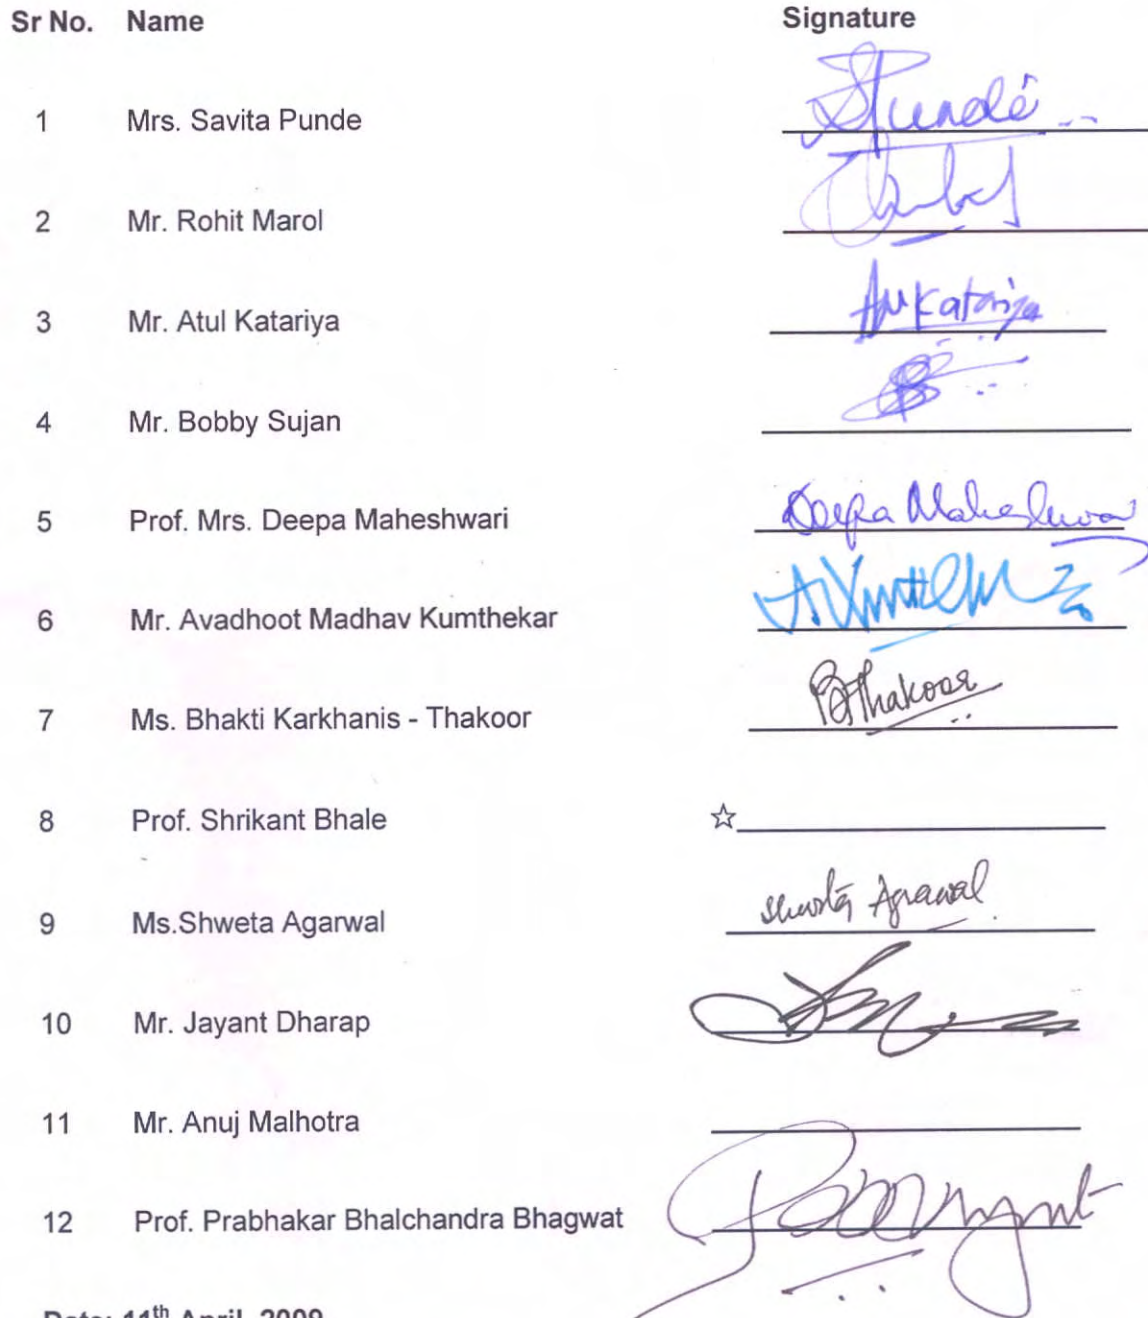 Sr No. Name Signature
1 Mrs. Savita Punde SPundé
2 Mr. Rohit Marol
3 Mr. Atul Katariya AMKatariya
4 Mr. Bobby Sujan
5 Prof. Mrs. Deepa Maheshwari Deepa Maheshwari
6 Mr. Avadhoot Madhav Kumthekar
7 Ms. Bhakti Karkhanis - Thakoor BThakoor
8 Prof. Shrikant Bhale ☆
9 Ms.Shweta Agarwal Shweta Agrawal
10 Mr. Jayant Dharap
11 Mr. Anuj Malhotra
12 Prof. Prabhakar Bhalchandra Bhagwat
Date: 11th April, 2009